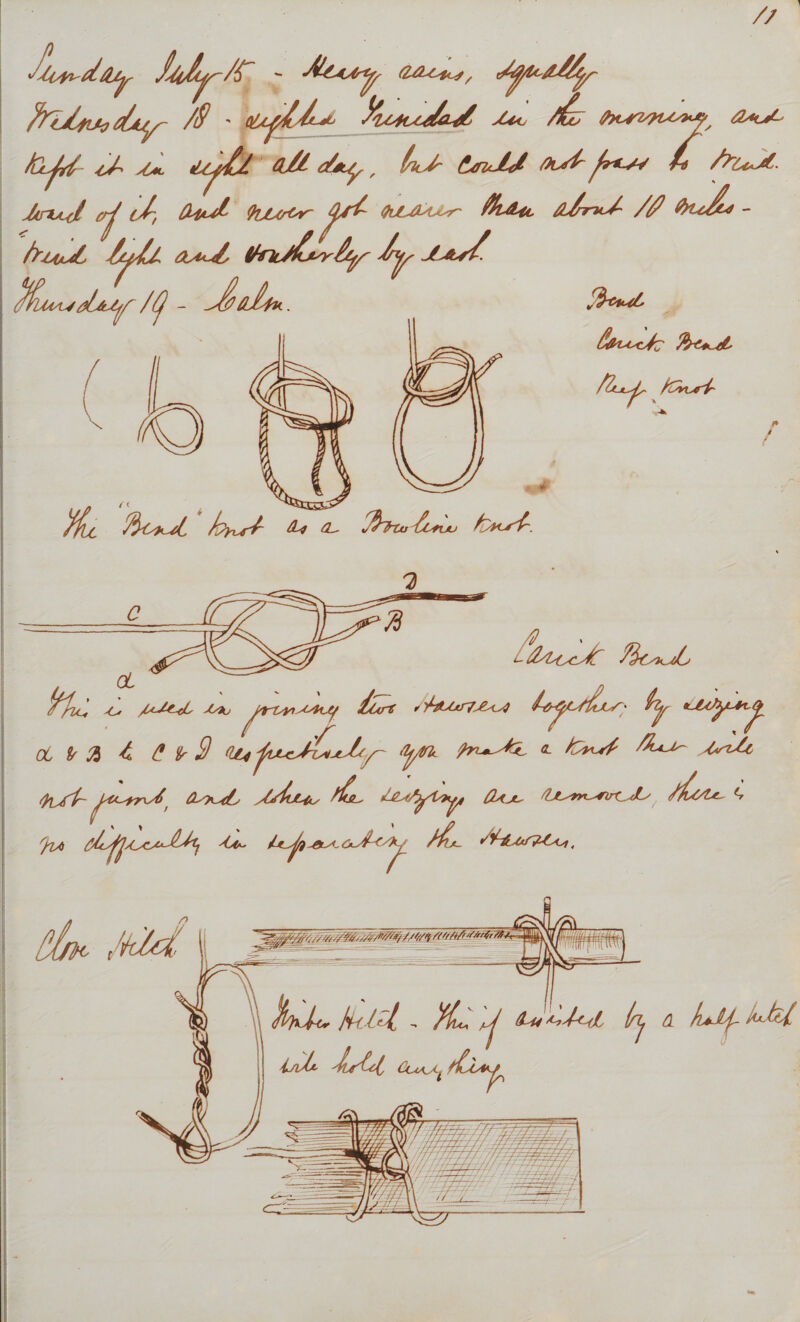 11
Sunday July 15 - Heavy rains, squally
Wednesday 18 - sighted Trinidad in the morning, and
kept it in sight all day, but could not pass to wind.
ward of it, and never got nearer than about 10 miles -
Wind light and Southerly by east.
Thursday 19 - Calm.
Bend
Carrick Bend
Reef Knot
The "Bend" knot as a Bowline knot.
C
D
B
a
Carrick Bend
This is used in joining two Hawsers together; by seizing
a & B & C & D respectively you make a knot that will
not jamb, and when the seizings are removed, there is
no difficulty in separating the Hawsers.
Clove Hitch
Timber Hitch - This if assisted by a half hitch
will hold anything